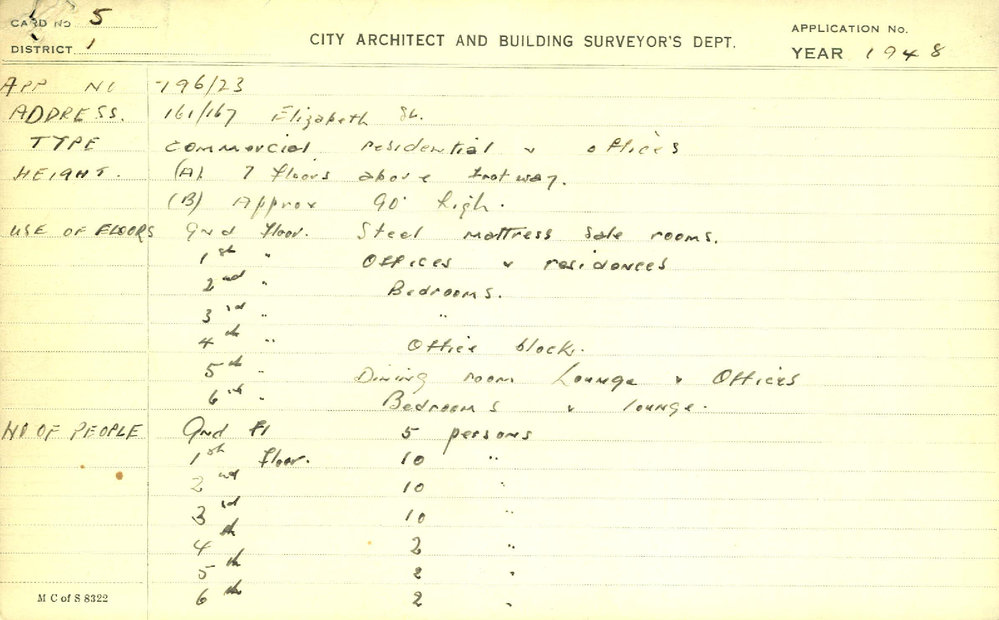 CARD NO 5
DISTRICT 1
CITY ARCHITECT AND BUILDING SURVEYOR'S DEPT.
APPLICATION No.
YEAR 1948
APP NO 796/23
ADDRESS. 161/167 Elizabeth St.
TYPE commercial residential & offices
HEIGHT. (A) 7 floors above footway.
(B) Approx 90' high.
USE OF FLOORS Gnd floor. Steel mattress sale rooms.
1st " Offices & residences
2nd " Bedrooms.
3rd " "
4th " Office block.
5th " Dining room Lounge & Offices
6th " Bedrooms & lounge.
NO OF PEOPLE Gnd Fl 5 persons
1st floor. 10 "
2nd 10 "
3rd 10 "
4th 2 "
5th 2 "
6th 2 "
M C of S 8322